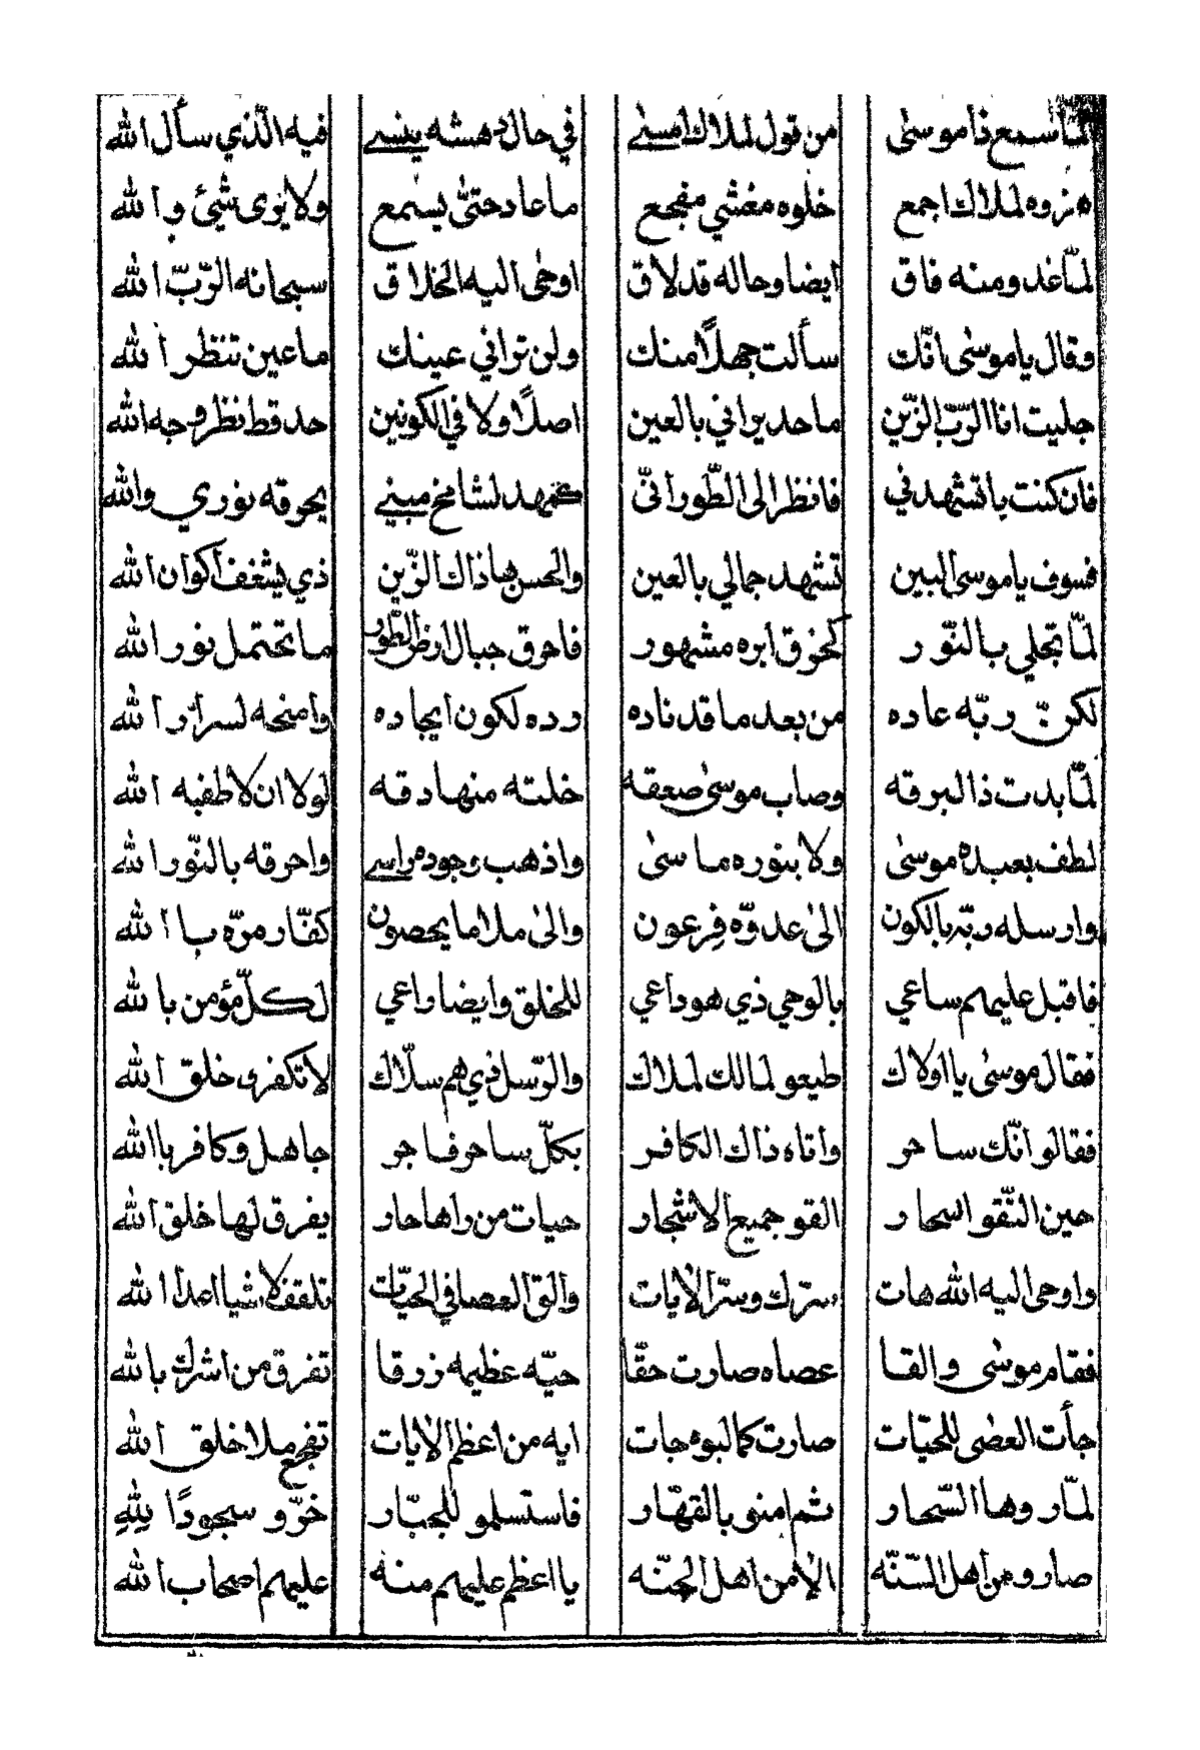 لمّا سمع ذا موسىٰ من قول لملاك امسىٰ في حال دهشه ينسىٰ فيه الّذي سأل الله
هزوه لملاك اجمع خلّوه مغشي مفجع ما عاد حتّىٰ يسمع ولا يوى شيئ والله
لمّا غد ومنه فاق ايضا وحاله قد لاق اوحٰى اليه الخلاق سبحانه الرّبّ الله
وقال يا موسىٰ انّك سألت جهلًا منك ولن تراني عينك ما عين تنظر الله
جليت انا الرّبّ الزّين ما حد يراني بالعين اصلًا ولا في الكونين حد قط نظر وجه الله
فان كنت با تشهدني فانظر الى الطّور انّي كمهد لشامخ مبني يحرقه نوري والله
فسوف يا موسى البين تشهد جمالي بالعين والحسن هاذاك الزّين ذي يشغف اكوان الله
لمّا تجلي بالنّور كخرق ابره مشهور فاحرق جبال ارض الطّور ما تحتمل نور الله
لكن ربّه عاده من بعد ما قد ناده رده لكون ايجاده وامنحه لسرار الله
لمّا بدت ذا البرقه وصاب موسىٰ صعقه خلته منها دقه لولا ان لاطفبه الله
لطف بعبده موسىٰ ولا بنوره ماسىٰ واذهب وجود مراسي واحرقه بالنّور الله
وارسله ربّه بالكون الىٰ عدوّه فرعون والىٰ ملا ما يحصون كفّار مرّه با الله
فاقبل عليهم ساعي بالوحي ذي هو داعي للخلق وايضا راعي لكلّ مؤمن بالله
فقال موسىٰ يا اولاك طيعو لمالك لملاك والرّسل ذي هم سلّاك لا تكفرى خلق الله
فقالو انّك ساحر واتاه ذاك الكافر بكلّ ساحر فاجر جاهل وكافر با الله
حين التّقو اسحار القو جميع الاشجار حيات من راها حار يفرق لها خلق الله
واوحى اليه الله هات سرّك وسرّ الايات والق العصا في الحيّات تلقف لاشيا اعدا الله
فقام موسى والقا عصاه صارت حقّا حيّه عظيمه زرقا تفرق من اشرك بالله
جأت العصٰى للحيّات صارت كما لبوه جات ايه من اعظم الايات تفجع ملا خلق الله
لمّا روها السّحار ثم امنو بالقهّار فاستسلمو للجبّار خرّو سجودًا للّٰهِ
صارو من اهل السّنّه الامن اهل الجنّه يا اعظم عليهم منه عليهم اصحاب الله